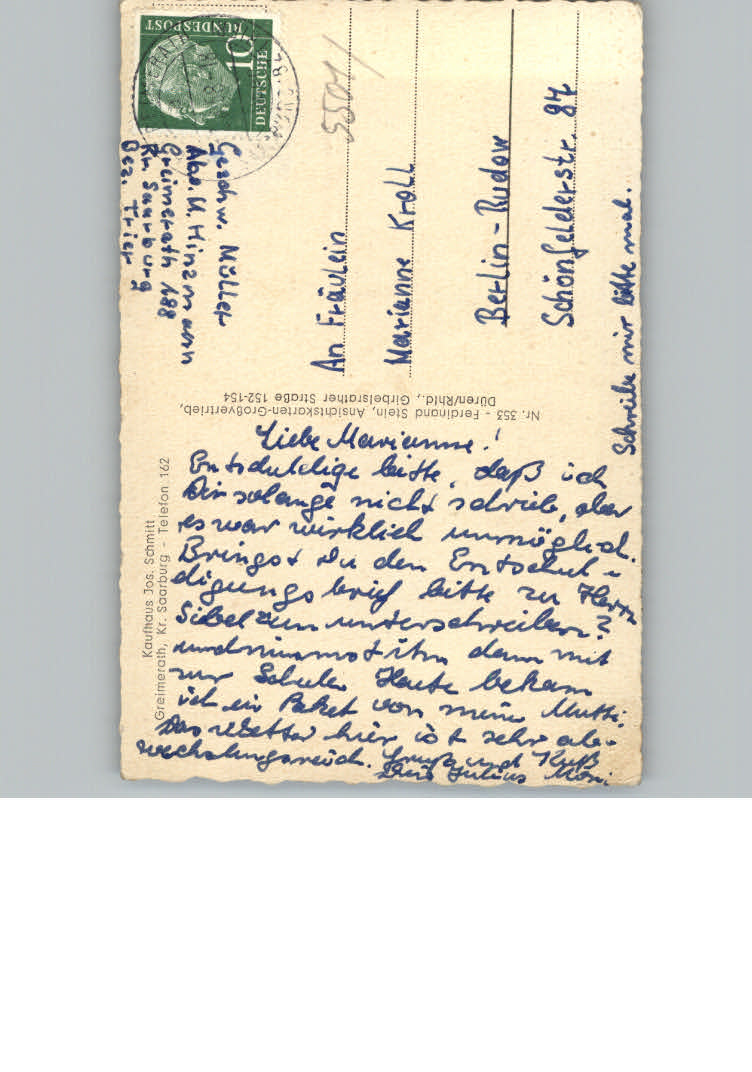 DEUTSCHE
BUNDESPOST
10
5501/
Geschw. Müller
Abs. U. Hinzmann
Greimerath 188
Kr. Saarburg
Bez. Trier
An Fräulein
Marianne Kroll
Berlin-Rudow
Schönfelderstr. 87
Schreibe mir bitte mal.
Nr. 353 - Ferdinand Stein, Ansichtskarten-Großvertrieb,
Düren/Rhld., Girbelsrather Straße 152-154
Kaufhaus Jos. Schmitt
Greimerath, Kr. Saarburg - Telefon 162
Liebe Marianne!
Entschuldige bitte, daß ich
Dir solange nicht schrieb, aber
es war wirklich unmöglich.
Bringst Du den Entschul-
digungsbrief bitte zu Herrn
Sibel zum unterschreiben?
und nimmst ihn dann mit
zur Schule. Heute bekam
ich ein Paket von meine Mutti.
Das Wetter hier ist sehr ab-
wechslungsreich. Gruß und Kuß